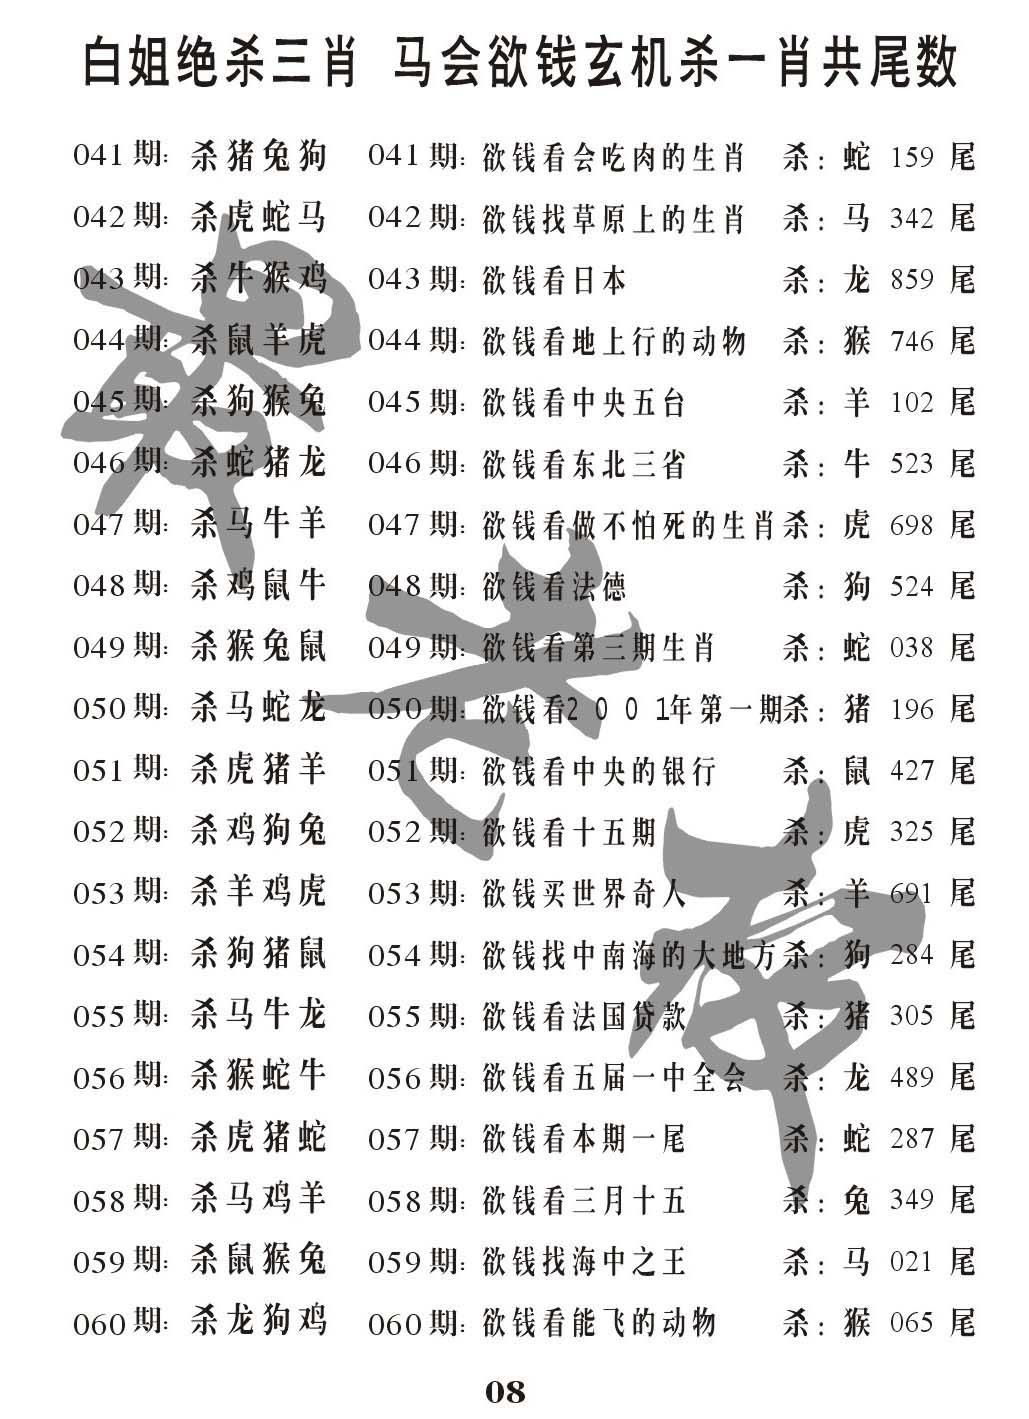 白姐绝杀三肖 马会欲钱玄机杀一肖共尾数
041期：杀猪兔狗 041期：欲钱看会吃肉的生肖 杀：蛇 159 尾
042期：杀虎蛇马 042期：欲钱找草原上的生肖 杀：马 342 尾
043期：杀牛猴鸡 043期：欲钱看日本 杀：龙 859 尾
044期：杀鼠羊虎 044期：欲钱看地上行的动物 杀：猴 746 尾
045期：杀狗猴兔 045期：欲钱看中央五台 杀：羊 102 尾
046期：杀蛇猪龙 046期：欲钱看东北三省 杀：牛 523 尾
047期：杀马牛羊 047期：欲钱看做不怕死的生肖 杀：虎 698 尾
048期：杀鸡鼠牛 048期：欲钱看法德 杀：狗 524 尾
049期：杀猴兔鼠 049期：欲钱看第三期生肖 杀：蛇 038 尾
050期：杀马蛇龙 050期：欲钱看2001年第一期 杀：猪 196 尾
051期：杀虎猪羊 051期：欲钱看中央的银行 杀：鼠 427 尾
052期：杀鸡狗兔 052期：欲钱看十五期 杀：虎 325 尾
053期：杀羊鸡虎 053期：欲钱买世界奇人 杀：羊 691 尾
054期：杀狗猪鼠 054期：欲钱找中南海的大地方 杀：狗 284 尾
055期：杀马牛龙 055期：欲钱看法国贷款 杀：猪 305 尾
056期：杀猴蛇牛 056期：欲钱看五届一中全会 杀：龙 489 尾
057期：杀虎猪蛇 057期：欲钱看本期一尾 杀：蛇 287 尾
058期：杀马鸡羊 058期：欲钱看三月十五 杀：兔 349 尾
059期：杀鼠猴兔 059期：欲钱找海中之王 杀：马 021 尾
060期：杀龙狗鸡 060期：欲钱看能飞的动物 杀：猴 065 尾
08